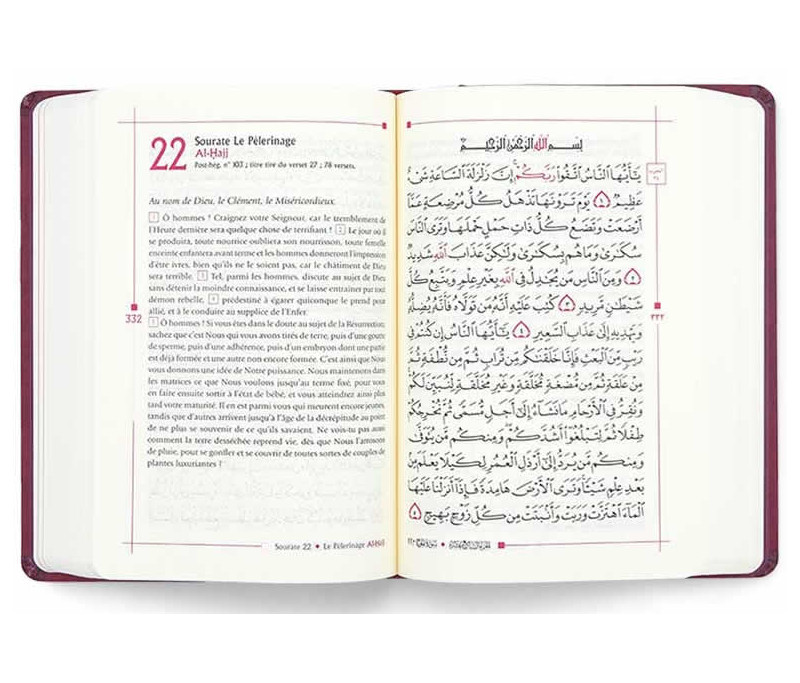 22
Sourate Le Pèlerinage
Al-Ḥajj
Post-hég. n° 103 ; titre tiré du verset 27 ; 78 versets.
Au nom de Dieu, le Clément, le Miséricordieux.
1 Ô hommes ! Craignez votre Seigneur, car le tremblement de
l'Heure dernière sera quelque chose de terrifiant ! 2 Le jour où il
se produira, toute nourrice oubliera son nourrisson, toute femelle
enceinte enfantera avant terme et les hommes donneront l'impression
d'être ivres, bien qu'ils ne le soient pas, car le châtiment de Dieu
sera terrible. 3 Tel, parmi les hommes, discute au sujet de Dieu
sans détenir la moindre connaissance, et se laisse entraîner par tout
démon rebelle, 4 prédestiné à égarer quiconque le prend pour
allié, et à le conduire au supplice de l'Enfer.
5 Ô hommes ! Si vous êtes dans le doute au sujet de la Résurrection,
sachez que c'est Nous qui vous avons tirés de terre, puis d'une goutte
de sperme, puis d'une adhérence, puis d'un embryon dont une partie
est déjà formée et une autre non encore formée. C'est ainsi que Nous
vous donnons une idée de Notre puissance. Nous maintenons dans
les matrices ce que Nous voulons jusqu'au terme fixé, pour vous
en faire ensuite sortir à l'état de bébé, et vous atteindrez ainsi plus
tard votre maturité. Il en est parmi vous qui meurent encore jeunes,
tandis que d'autres arrivent jusqu'à l'âge de la décrépitude au point
de ne plus se souvenir de ce qu'ils savaient. Ne vois-tu pas aussi
comment la terre desséchée reprend vie, dès que Nous l'arrosons
de pluie, pour se gonfler et se couvrir de toutes sortes de couples de
plantes luxuriantes ?
332
Sourate 22 • Le Pèlerinage
بِسْمِ اللَّهِ الرَّحْمَٰنِ الرَّحِيمِ
يَٰٓأَيُّهَا النَّاسُ اتَّقُوا رَبَّكُمْ إِنَّ زَلْزَلَةَ السَّاعَةِ شَىْءٌ
عَظِيمٌ ١ يَوْمَ تَرَوْنَهَا تَذْهَلُ كُلُّ مُرْضِعَةٍ عَمَّا
أَرْضَعَتْ وَتَضَعُ كُلُّ ذَاتِ حَمْلٍ حَمْلَهَا وَتَرَى النَّاسَ
سُكَٰرَىٰ وَمَا هُم بِسُكَٰرَىٰ وَلَٰكِنَّ عَذَابَ اللَّهِ شَدِيدٌ
٢ وَمِنَ النَّاسِ مَن يُجَٰدِلُ فِى اللَّهِ بِغَيْرِ عِلْمٍ وَيَتَّبِعُ كُلَّ
شَيْطَٰنٍ مَّرِيدٍ ٣ كُتِبَ عَلَيْهِ أَنَّهُ مَن تَوَلَّاهُ فَأَنَّهُ يُضِلُّهُ
وَيَهْدِيهِ إِلَىٰ عَذَابِ السَّعِيرِ ٤ يَٰٓأَيُّهَا النَّاسُ إِن كُنتُمْ فِى
رَيْبٍ مِّنَ الْبَعْثِ فَإِنَّا خَلَقْنَٰكُم مِّن تُرَابٍ ثُمَّ مِن نُّطْفَةٍ ثُمَّ
مِنْ عَلَقَةٍ ثُمَّ مِن مُّضْغَةٍ مُّخَلَّقَةٍ وَغَيْرِ مُخَلَّقَةٍ لِّنُبَيِّنَ لَكُمْ
وَنُقِرُّ فِى الْأَرْحَامِ مَا نَشَآءُ إِلَىٰٓ أَجَلٍ مُّسَمًّى ثُمَّ نُخْرِجُكُمْ
طِفْلًا ثُمَّ لِتَبْلُغُوٓا أَشُدَّكُمْ وَمِنكُم مَّن يُتَوَفَّىٰ
وَمِنكُم مَّن يُرَدُّ إِلَىٰٓ أَرْذَلِ الْعُمُرِ لِكَيْلَا يَعْلَمَ مِن
بَعْدِ عِلْمٍ شَيْـًٔا وَتَرَى الْأَرْضَ هَامِدَةً فَإِذَآ أَنزَلْنَا عَلَيْهَا
الْمَآءَ اهْتَزَّتْ وَرَبَتْ وَأَنۢبَتَتْ مِن كُلِّ زَوْجٍ بَهِيجٍ ٥
٣٣٢